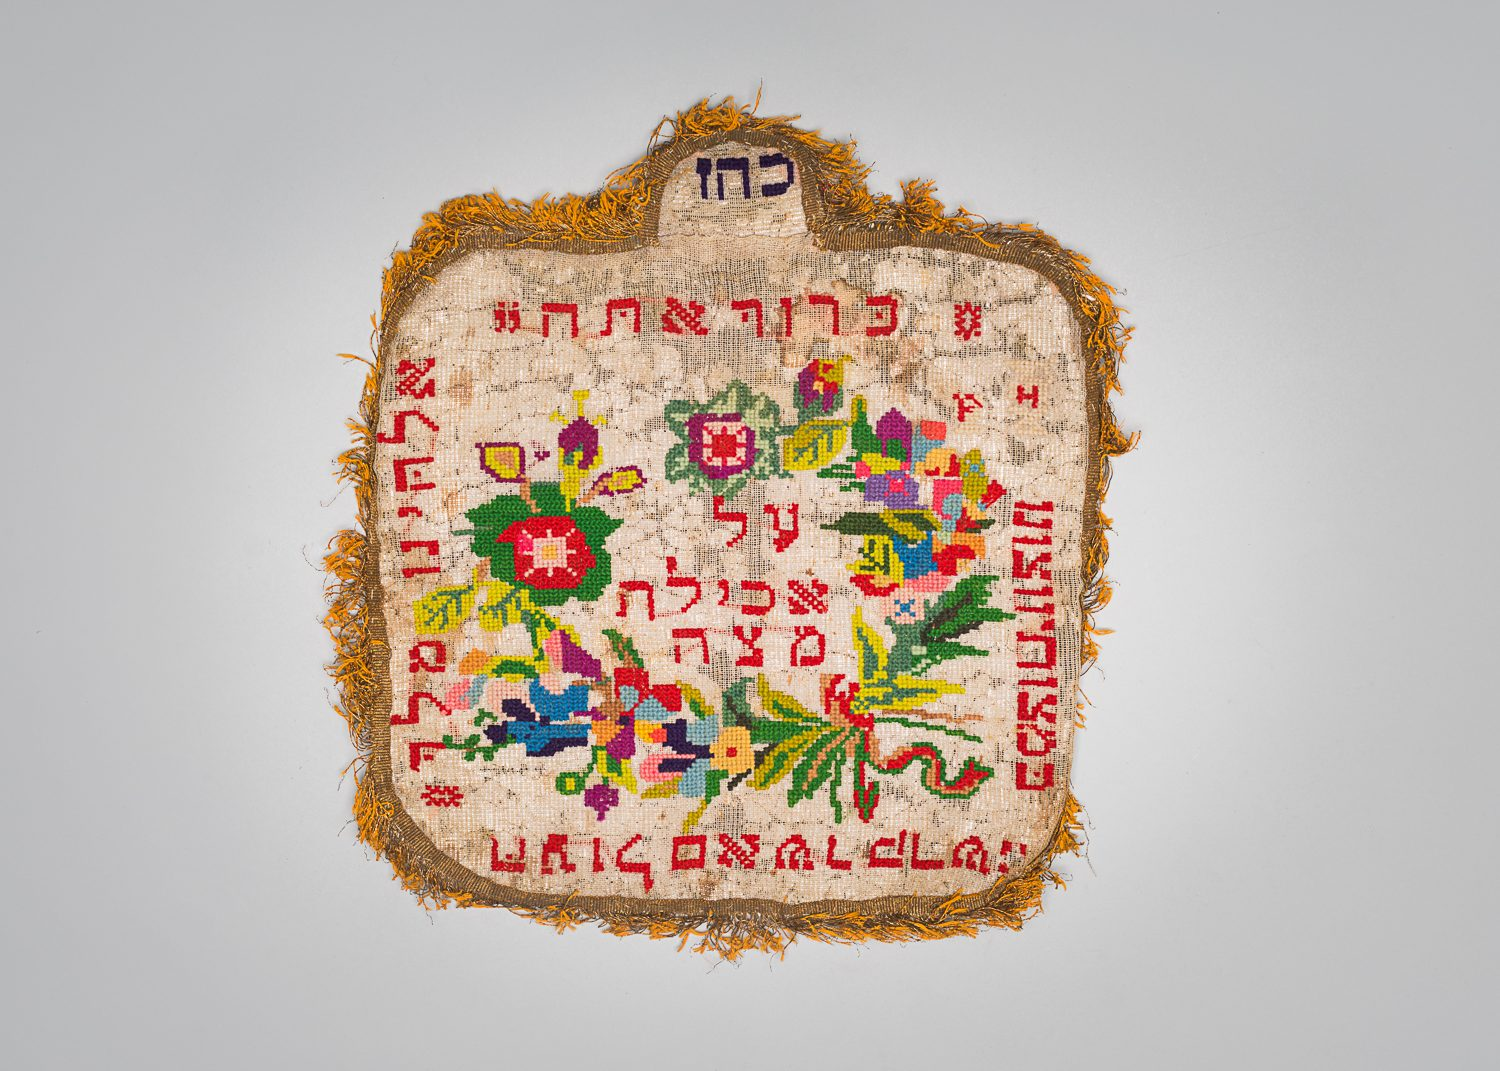 כהן
ברוך אתה יי
אלהינו מלך
העולם אשר קדשנו
במצותיו וצונו
על
אכילת
מצה